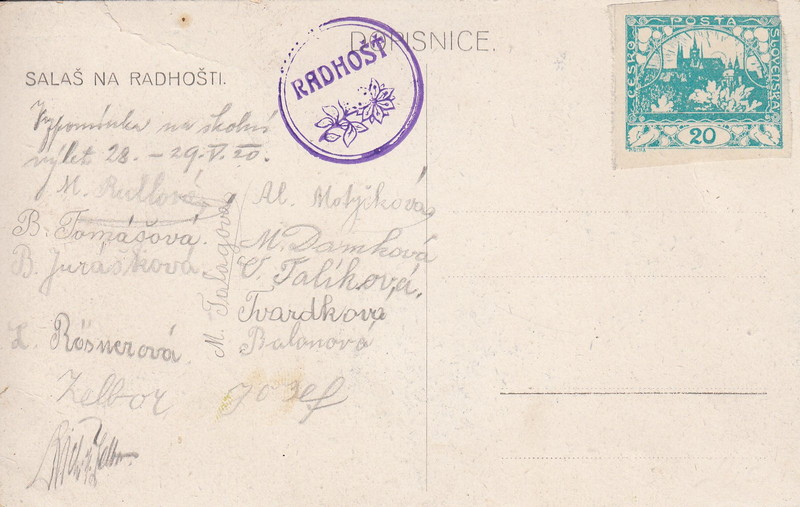 DOPISNICE.
SALAŠ NA RADHOŠTI.
RADHOŠŤ
POŠTA
ČESKO
SLOVENSKÁ
20
Vzpomínka na školní
výlet 28. – 29. V. 20.
M. Rullová
Al. Motyčková
B. Tomášová.
M. Damková
B. Jurášková
V. Talíková,
M. Talagová
Tvardková
Rösnerová.
Balonová
Zelbor Josef